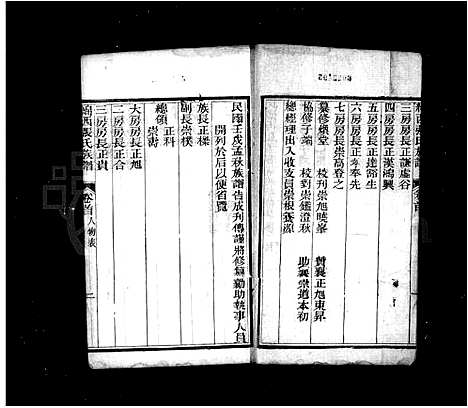 民國壬戌孟秋族譜告成刋傳謹將修篡勷助執事人員
開列於后以便省覽
族長正樑
副長崇樸
總領 正科
崇壽
大房房長正旭
二房房長正合
三房房長正貴
西張氏族譜 卷首 人物表 一
三房房長正謙虛谷
四房房長正漢鴻興
五房房長正達豁生
六房房長正孝奉先
七房房長崇高登之
纂修燦堂 校刋崇旭曉峯 贊襄正旭東昇
協修子端 校對崇鑑澄秋 助襄崇道本初
總經理出入收支員崇根養源